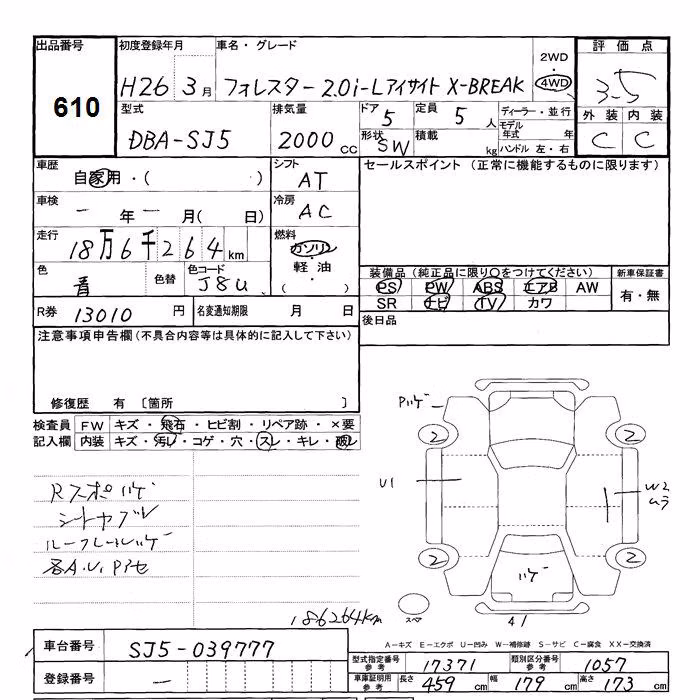 出品番号 610
初度登録年月 H26 3月
車名・グレード フォレスター 2.0i-Lアイサイト X-BREAK
2WD
4WD
評価点 3.5
外装 内装
C C
型式 DBA-SJ5
排気量 2000cc
ドア 5
形状 SW
定員 5人
積載 kg
ディーラー・並行
モデル年式 年
ハンドル 左・右
車歴 自家用・( )
シフト AT
セールスポイント (正常に機能するものに限ります)
車検 - 年 - 月( 日)
冷房 AC
走行 18万6千264km
燃料 ガソリン・軽油・( )
色 青
色替
色コード J8U
装備品(純正品に限り○をつけてください)
PS PW ABS エアB AW
SR ナビ TV カワ
新車保証書
有・無
R券 13010円
名変通知期限 月 日
後日品
注意事項申告欄(不具合内容等は具体的に記入して下さい)
修復歴 有 〔箇所 〕
検査員記入欄
FW キズ・飛石・ヒビ割・リペア跡・×要
内装 キズ・汚レ・コゲ・穴・スレ・キレ・破レ
Rスポハゲ
シートヤブレ
ルーフレールハゲ
各A.U.Pキセ
186264km
Pハゲ
2 2
U1
W2
ムラ
2 2
ハゲ
スペア
41
A-キズ E-エクボ U-凹み W-補修跡 S-サビ C-腐食 XX-交換済
車台番号 SJ5-039777
登録番号 -
型式指定番号 参考 17371
類別区分番号 参考 1057
車庫証明用 参考 長さ 459cm 幅 179cm 高さ 173cm